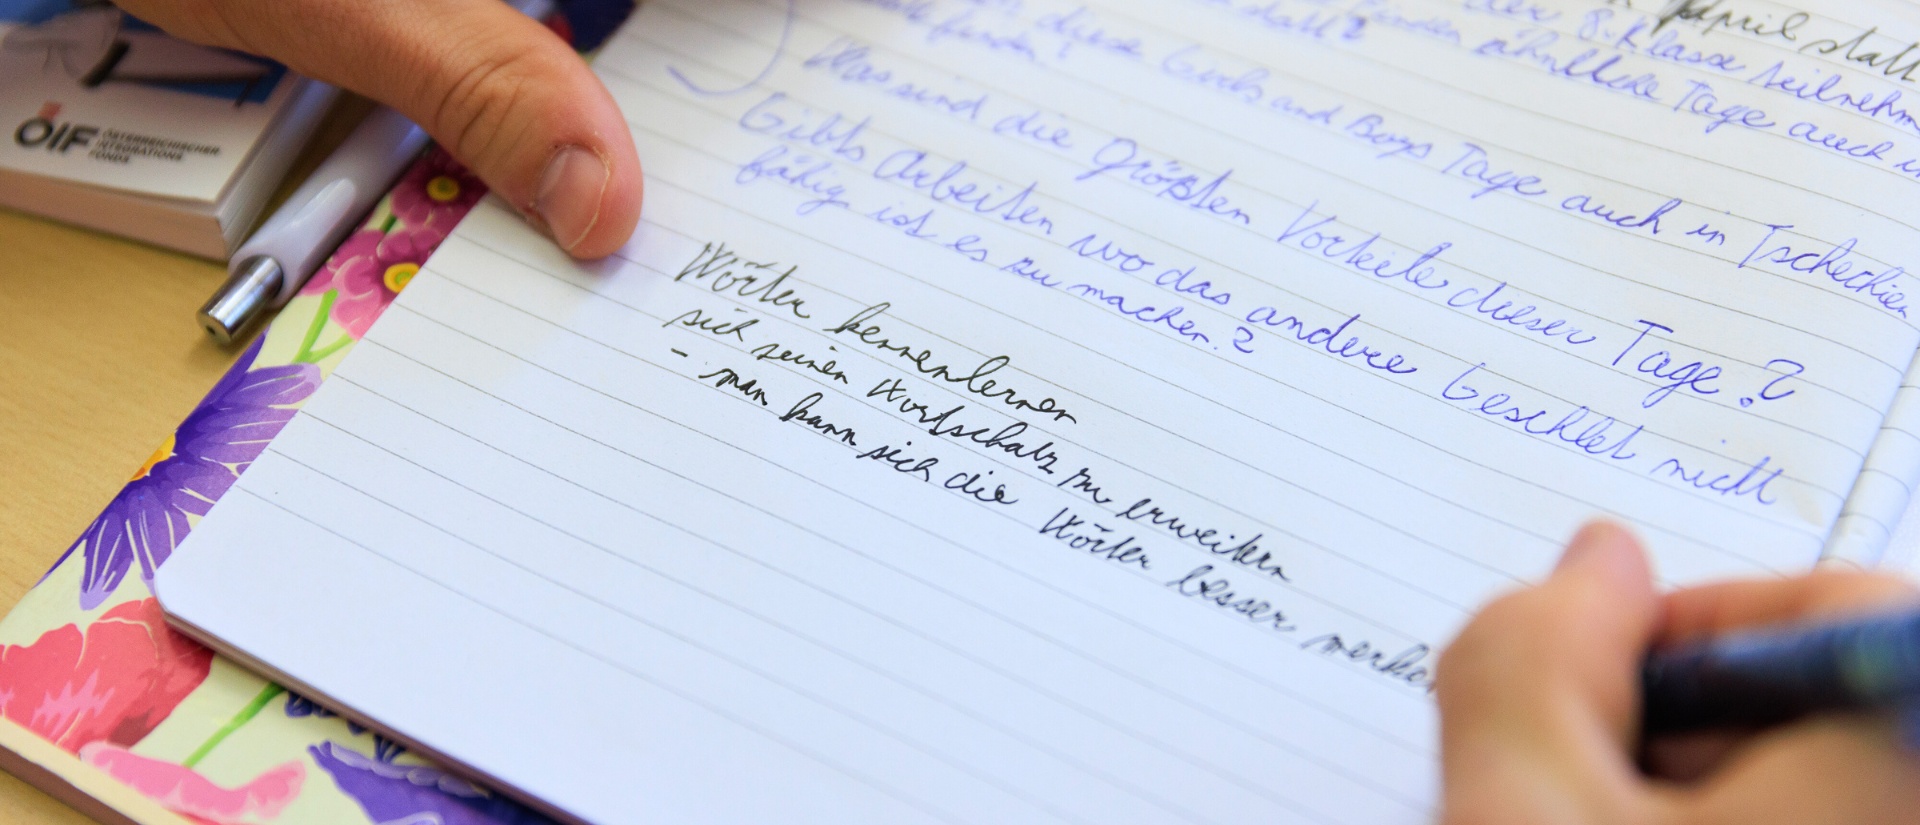 ÖIF ÖSTERREICHISCHER
INTEGRATIONS
FONDS
April statt
der 8. Klasse teilnehm
ähnliche Tage auch in
diese Girls and Boys Tage auch in Tschechien
statt?
Was sind die größten Vorteile dieser Tage?
Gibts Arbeiten wo das andere Geschlet nicht
fähig ist es zu machen.?
Wörter kennenlernen
sich seinen Wortschatz zu erweitern
- man kann sich die Wörter besser merken